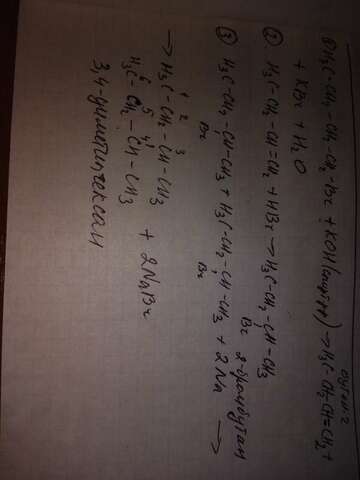 ① H₃C-CH₂-CH-CH₂-Br + KOH(спиртов) → H₃C-CH₂-CH=CH₂ +
+ KBr + H₂O
② H₃C-CH₂-CH=CH₂ + HBr → H₃C-CH₂-CH-CH₃
Br
2-бромбутан
③ H₃C-CH₂-CH-CH₃ + H₃C-CH₂-CH-CH₃ + 2Na →
Br Br
→ H₃C-CH₂-CH-CH₃
1 2 3
H₃C-CH₂-CH-CH₃ + 2NaBr
6 5 4
3,4-диметилгексан